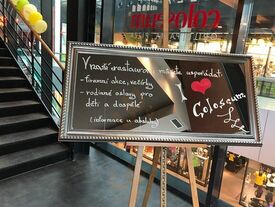 colosseum
V naší restauraci můžete uspořádat:
- firemní akce, večírky
- rodinné oslavy pro
děti a dospělé
(informace u obsluhy)
Colosseum